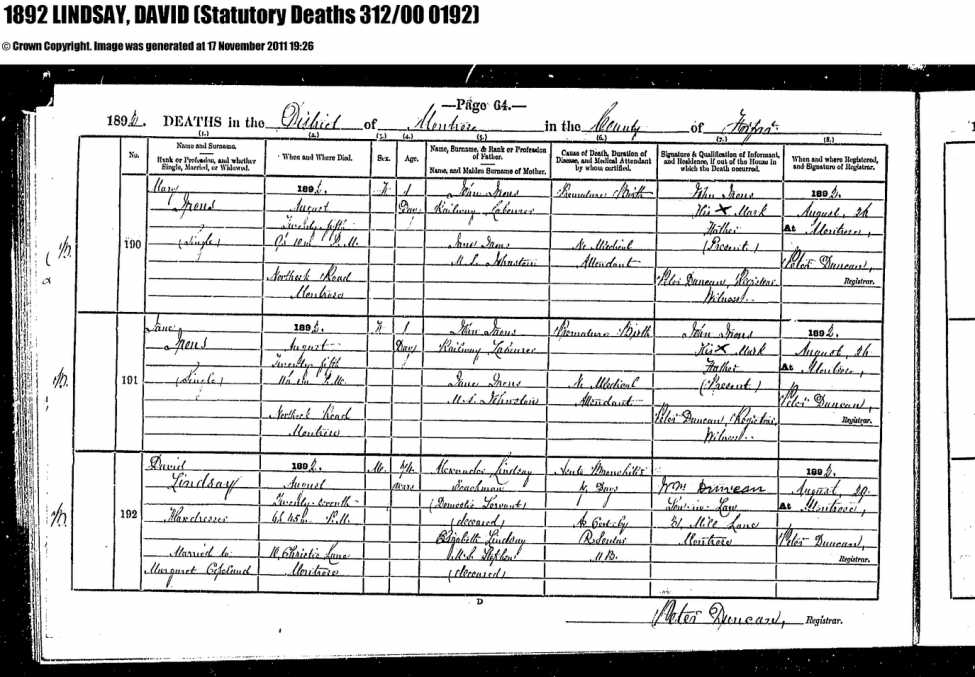 1892 LINDSAY, DAVID (Statutory Deaths 312/00 0192)
© Crown Copyright. Image was generated at 17 November 2011 19:26
—Page 64.—
1892. DEATHS in the District of Montrose in the County of Forfar
(1.) (2.) (3.) (4.) (5.) (6.) (7.) (8.)
No.
Name and Surname.
Rank or Profession, and whether Single, Married, or Widowed.
When and Where Died.
Sex.
Age.
Name, Surname, & Rank or Profession of Father.
Name, and Maiden Surname of Mother.
Cause of Death, Duration of Disease, and Medical Attendant by whom certified.
Signature & Qualification of Informant, and Residence, if out of the House in which the Death occurred.
When and where Registered, and Signature of Registrar.
190
Mary
Irons
(Single)
1892.
August
Twenty fifth
P.M.
Road
Montrose
F
1
Day
John Irons
Railway Labourer
Jane Irons
M.S. Johnston
Premature Birth
No Medical
Attendant
John Irons
His X Mark
Father
(Present)
Peter Duncan, Registrar
Witness.
1892.
August, 26
At Montrose,
Peter Duncan,
Registrar.
191
Jane
Irons
(Single)
1892.
August
Twenty fifth
P.M.
Road
Montrose
F
1
Day
John Irons
Railway Labourer
Jane Irons
M.S. Johnston
Premature Birth
No Medical
Attendant
John Irons
His X Mark
Father
(Present)
Peter Duncan, Registrar
Witness.
1892.
August, 26
At Montrose,
Peter Duncan,
Registrar.
192
David
Lindsay
Married to
Margaret Copeland
1892.
August
Twenty seventh
6h 45m P.M.
Christie Lane
Montrose
M.
years
Alexander Lindsay
Coachman
(Domestic Servant)
(deceased)
Elizabeth Lindsay
M.S.
(deceased)
Acute Bronchitis
Days
As Cert by
M.B.
Wm Duncan
Son-in-Law
Mill Lane
Montrose
1892.
August, 29.
At Montrose,
Peter Duncan,
Registrar.
D
Peter Duncan, Registrar.